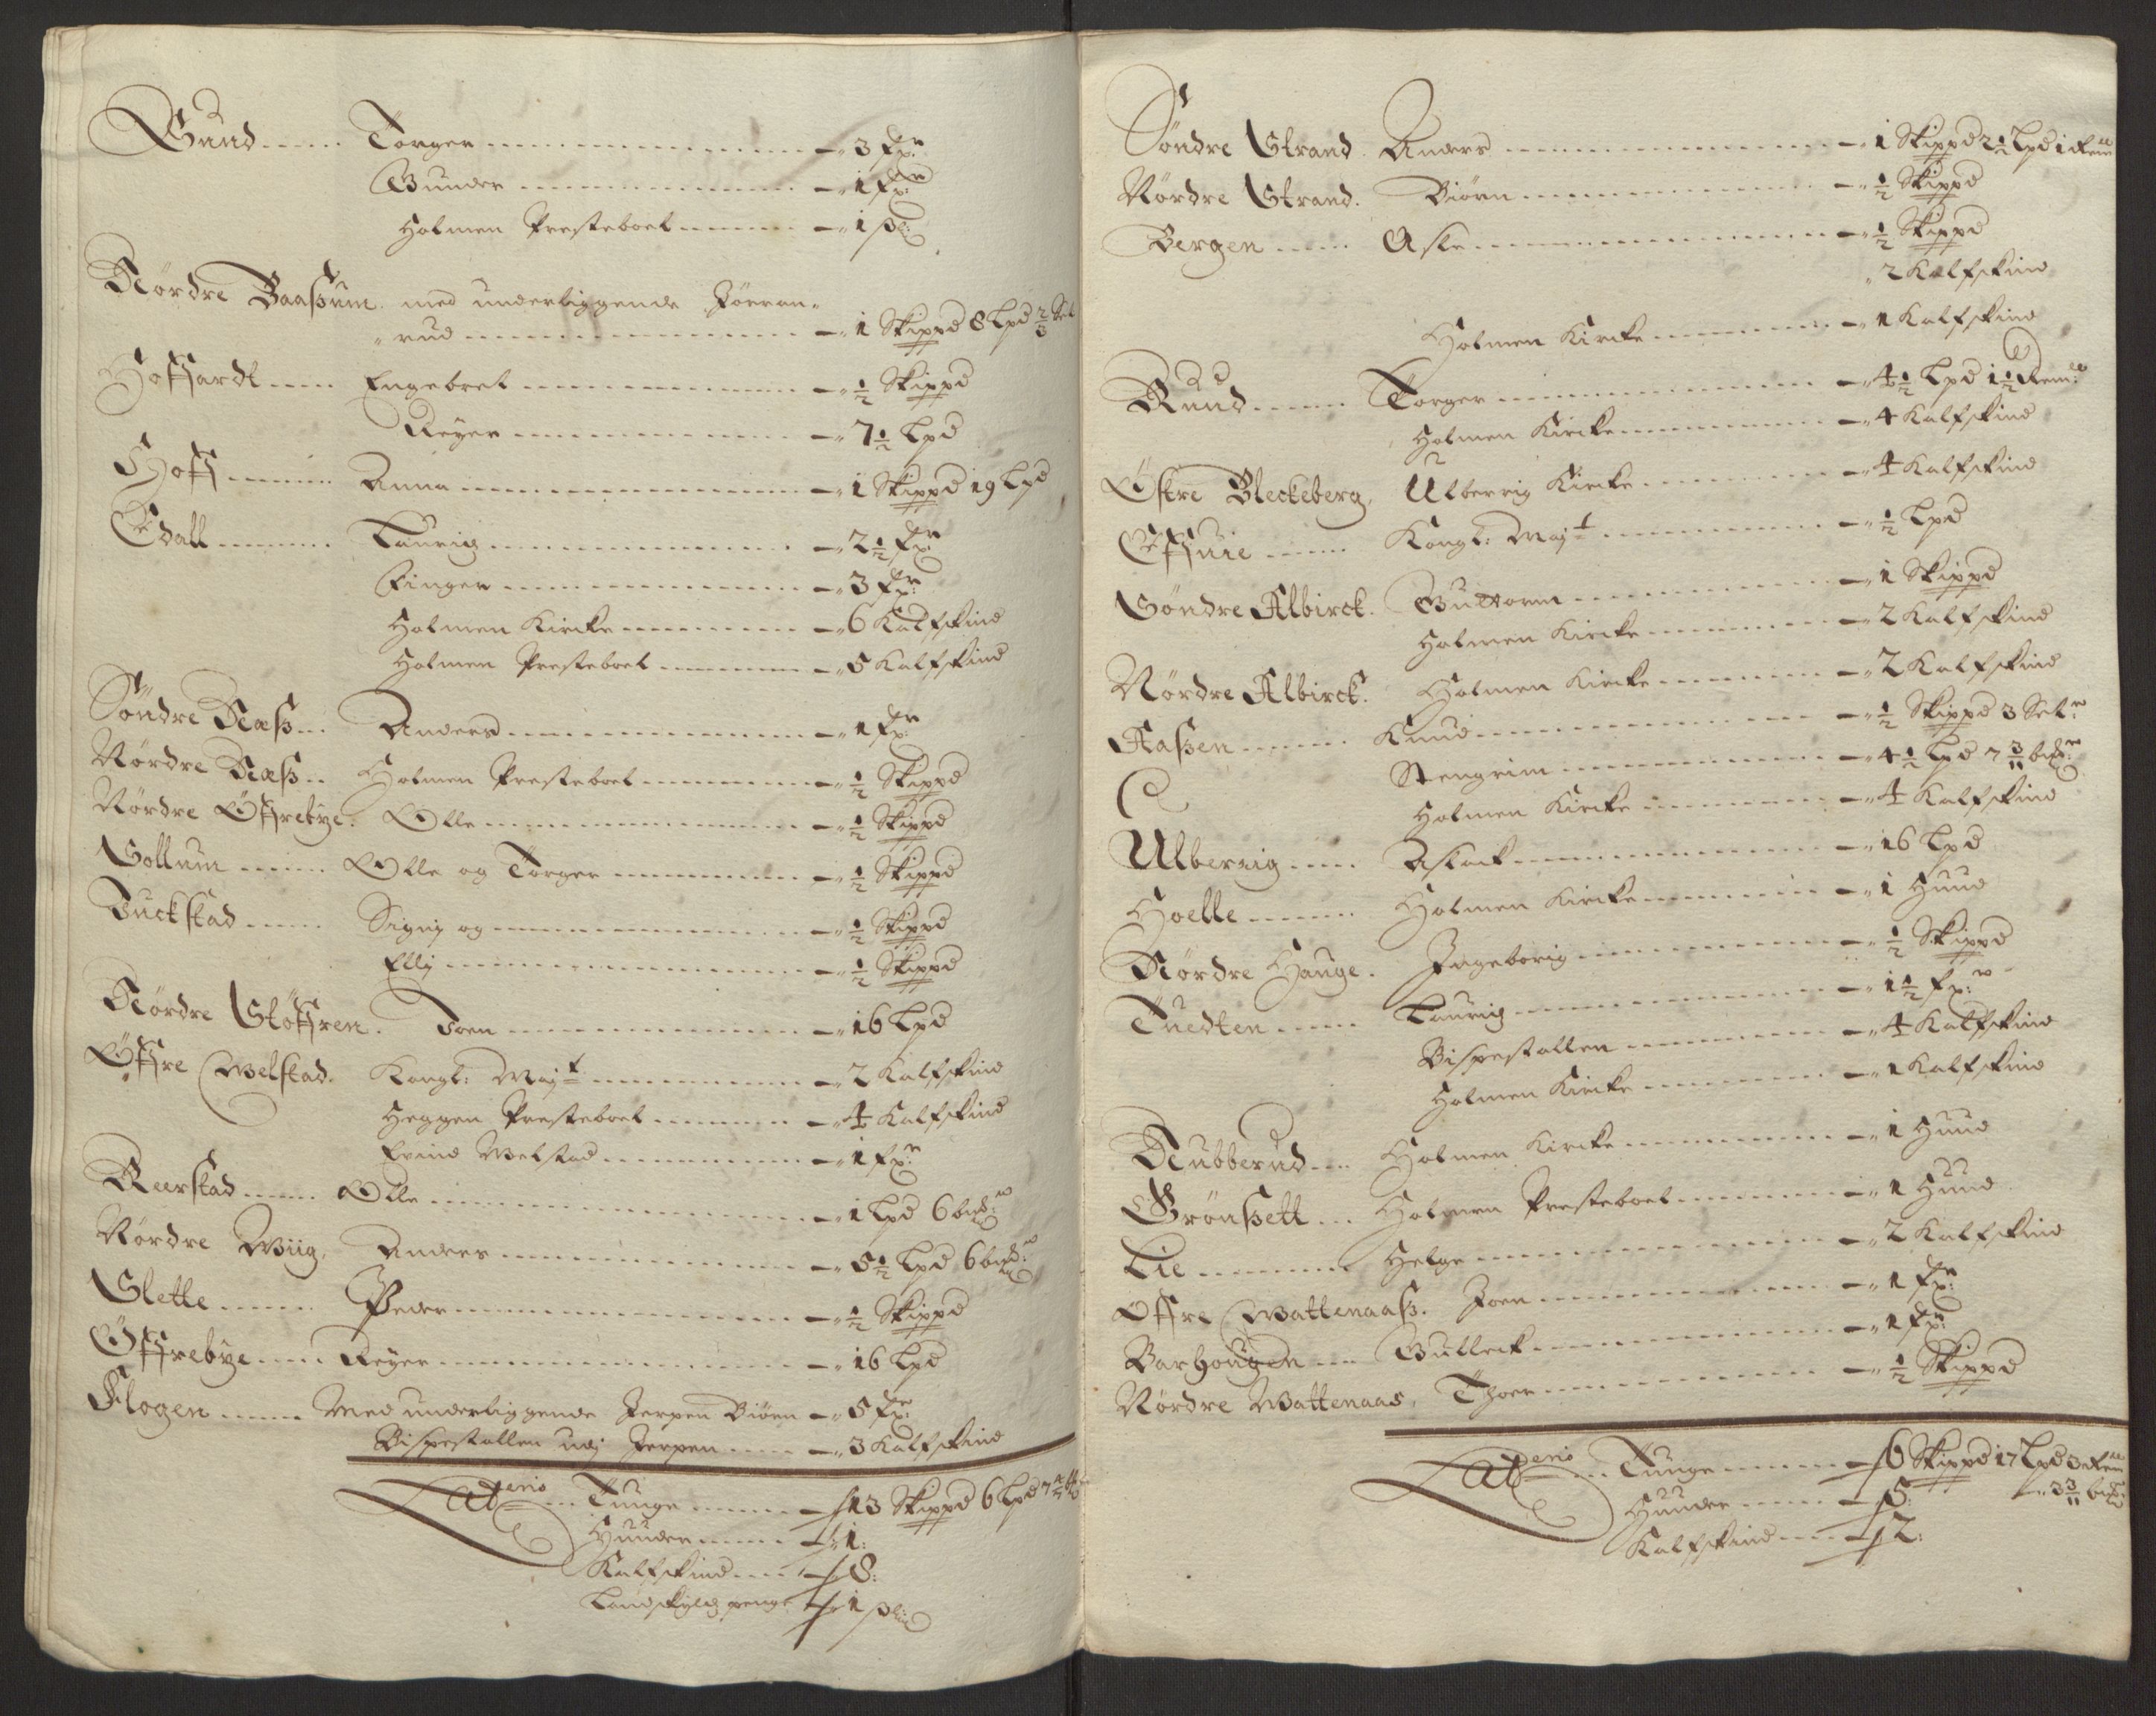 Gruud ...... Torger ...... 3 fr:
Gunder ...... 1 fr:
Holmen Presteboel ...... 1 sl:
Nördre Baaßum med underliggende Jörran-
rud ...... 1 Skippd 8 Lpd 2/3 Set
Hoffardt ...... Engebret ...... ½ Skippd
Reyer ...... 7½ Lpd
Hoff ...... Anna ...... 1 Skippd 19 Lpd
Edall ...... Lauriz ...... 2½ fr:
Finger ...... 3 fr:
Holmen Kircke ...... 6 Kalfskind
Holmen Presteboel ...... 5 Kalfskind
Söndre Næß ... Anders ...... 1 fr:
Nördre Næß .. Holmen Presteboel ...... ½ Skippd
Nördre Öffrebye. Olle ...... ½ Skippd
Sollum ...... Olle og Torger ...... ½ Skippd
Tuckstad ...... Signj og ...... ½ Skippd
Ellj ...... ½ Skippd
Nördre Stöffren. Joen ...... 16 Lpd
Öffre Welstad. Kongl: Majt ...... 2 Kalfskind
Heggen Presteboel ...... 4 Kalfskind
Erind Welstad ...... 1 fr:
Reerstad ...... Olle ...... 1 Lpd 6 bmd:
Nördre Wiig. Anders ...... 5½ Lpd 6 bmd:
Slette ...... Peder ...... ½ Skippd
Öffrebye ..... Reyer ...... 16 Lpd
Flogen ...... Med underliggende Jerpen Biörn 5 fr:
Bispestollen udj Jerpen ..... 3 Kalfskind
Lateris ... Tunge ...... 13 Skippd 6 Lpd
Huuder ...... 1:
Kalfskind .... 8:
Landskyld penge 1 sl:
Söndre Strand. Anders ...... 1 Skippd 2½ Lpd 1 Rem
Nördre Strand. Biörn ...... ½ Skippd
Bergen ..... Asle ...... ½ Skippd
2 Kalfskind
Holmen Kircke ...... 1 Kalfskind
Ruud ...... Torger ...... 4½ Lpd 1½ Rem:
Holmen Kircke ...... 4 Kalfskind
Östre Bleckeberg. Ulberrig Kircke ...... 4 Kalfskind
Effsuie ..... Kongl: Majt ...... ½ Lpd
Söndre Albirck. Guttorm ...... 1 Skippd
Holmen Kircke ...... 2 Kalfskind
Nördre Albirck. Holmen Kircke ...... 2 Kalfskind
Aaßen ...... Knud ...... ½ Skippd 3 Set:
Stengrim ...... 4½ Lpd 7 3/11 bmd:
Holmen Kircke ...... 4 Kalfskind
Ulberrig ..... Aslack ...... 16 Lpd
Hoelle ...... Holmen Kircke ...... 1 Huud
Nördre Hauge. Ingeborig ...... ½ Skippd
Tuedten ..... Lauriz ...... 1½ fr:
Bispestollen ...... 4 Kalfskind
Holmen Kircke ...... 1 Kalfskind
Nubberud .... Holmen Kircke ...... 1 Huud
Grönßett ... Holmen Presteboel ...... 1 Huud
Lie ...... Helge ...... 2 Kalfskind
Öffre Wattenaaß. Joen ...... 1 fr:
Barhougen .... Gulleck ...... 1 fr:
Nördre Wattenaas, Thoer ...... ½ Skippd
Lateris ... Tunge ...... 6 Skippd 17 Lpd 3 Rem
Huuder ..... 5: 3 3/11 bmd
Kalfskind .... 2: